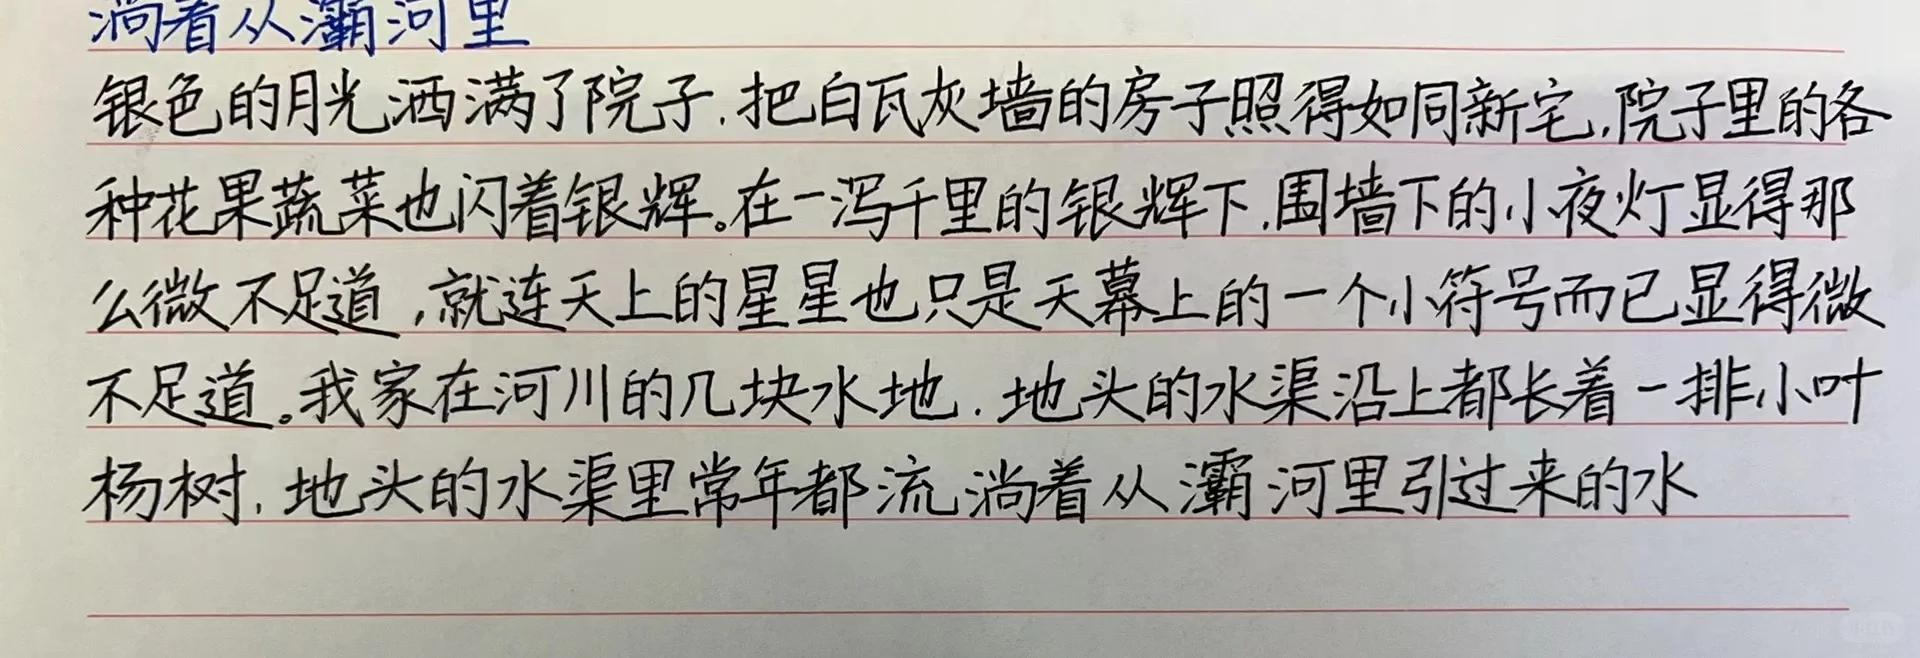 淌着从灞河里
银色的月光洒满了院子.把白瓦灰墙的房子照得如同新宅,院子里的各
种花果蔬菜也闪着银辉。在一泻千里的银辉下.围墙下的小夜灯显得那
么微不足道,就连天上的星星也只是天幕上的一个小符号而已显得微
不足道。我家在河川的几块水地.地头的水渠沿上都长着一排小叶
杨树.地头的水渠里常年都流淌着从灞河里引过来的水